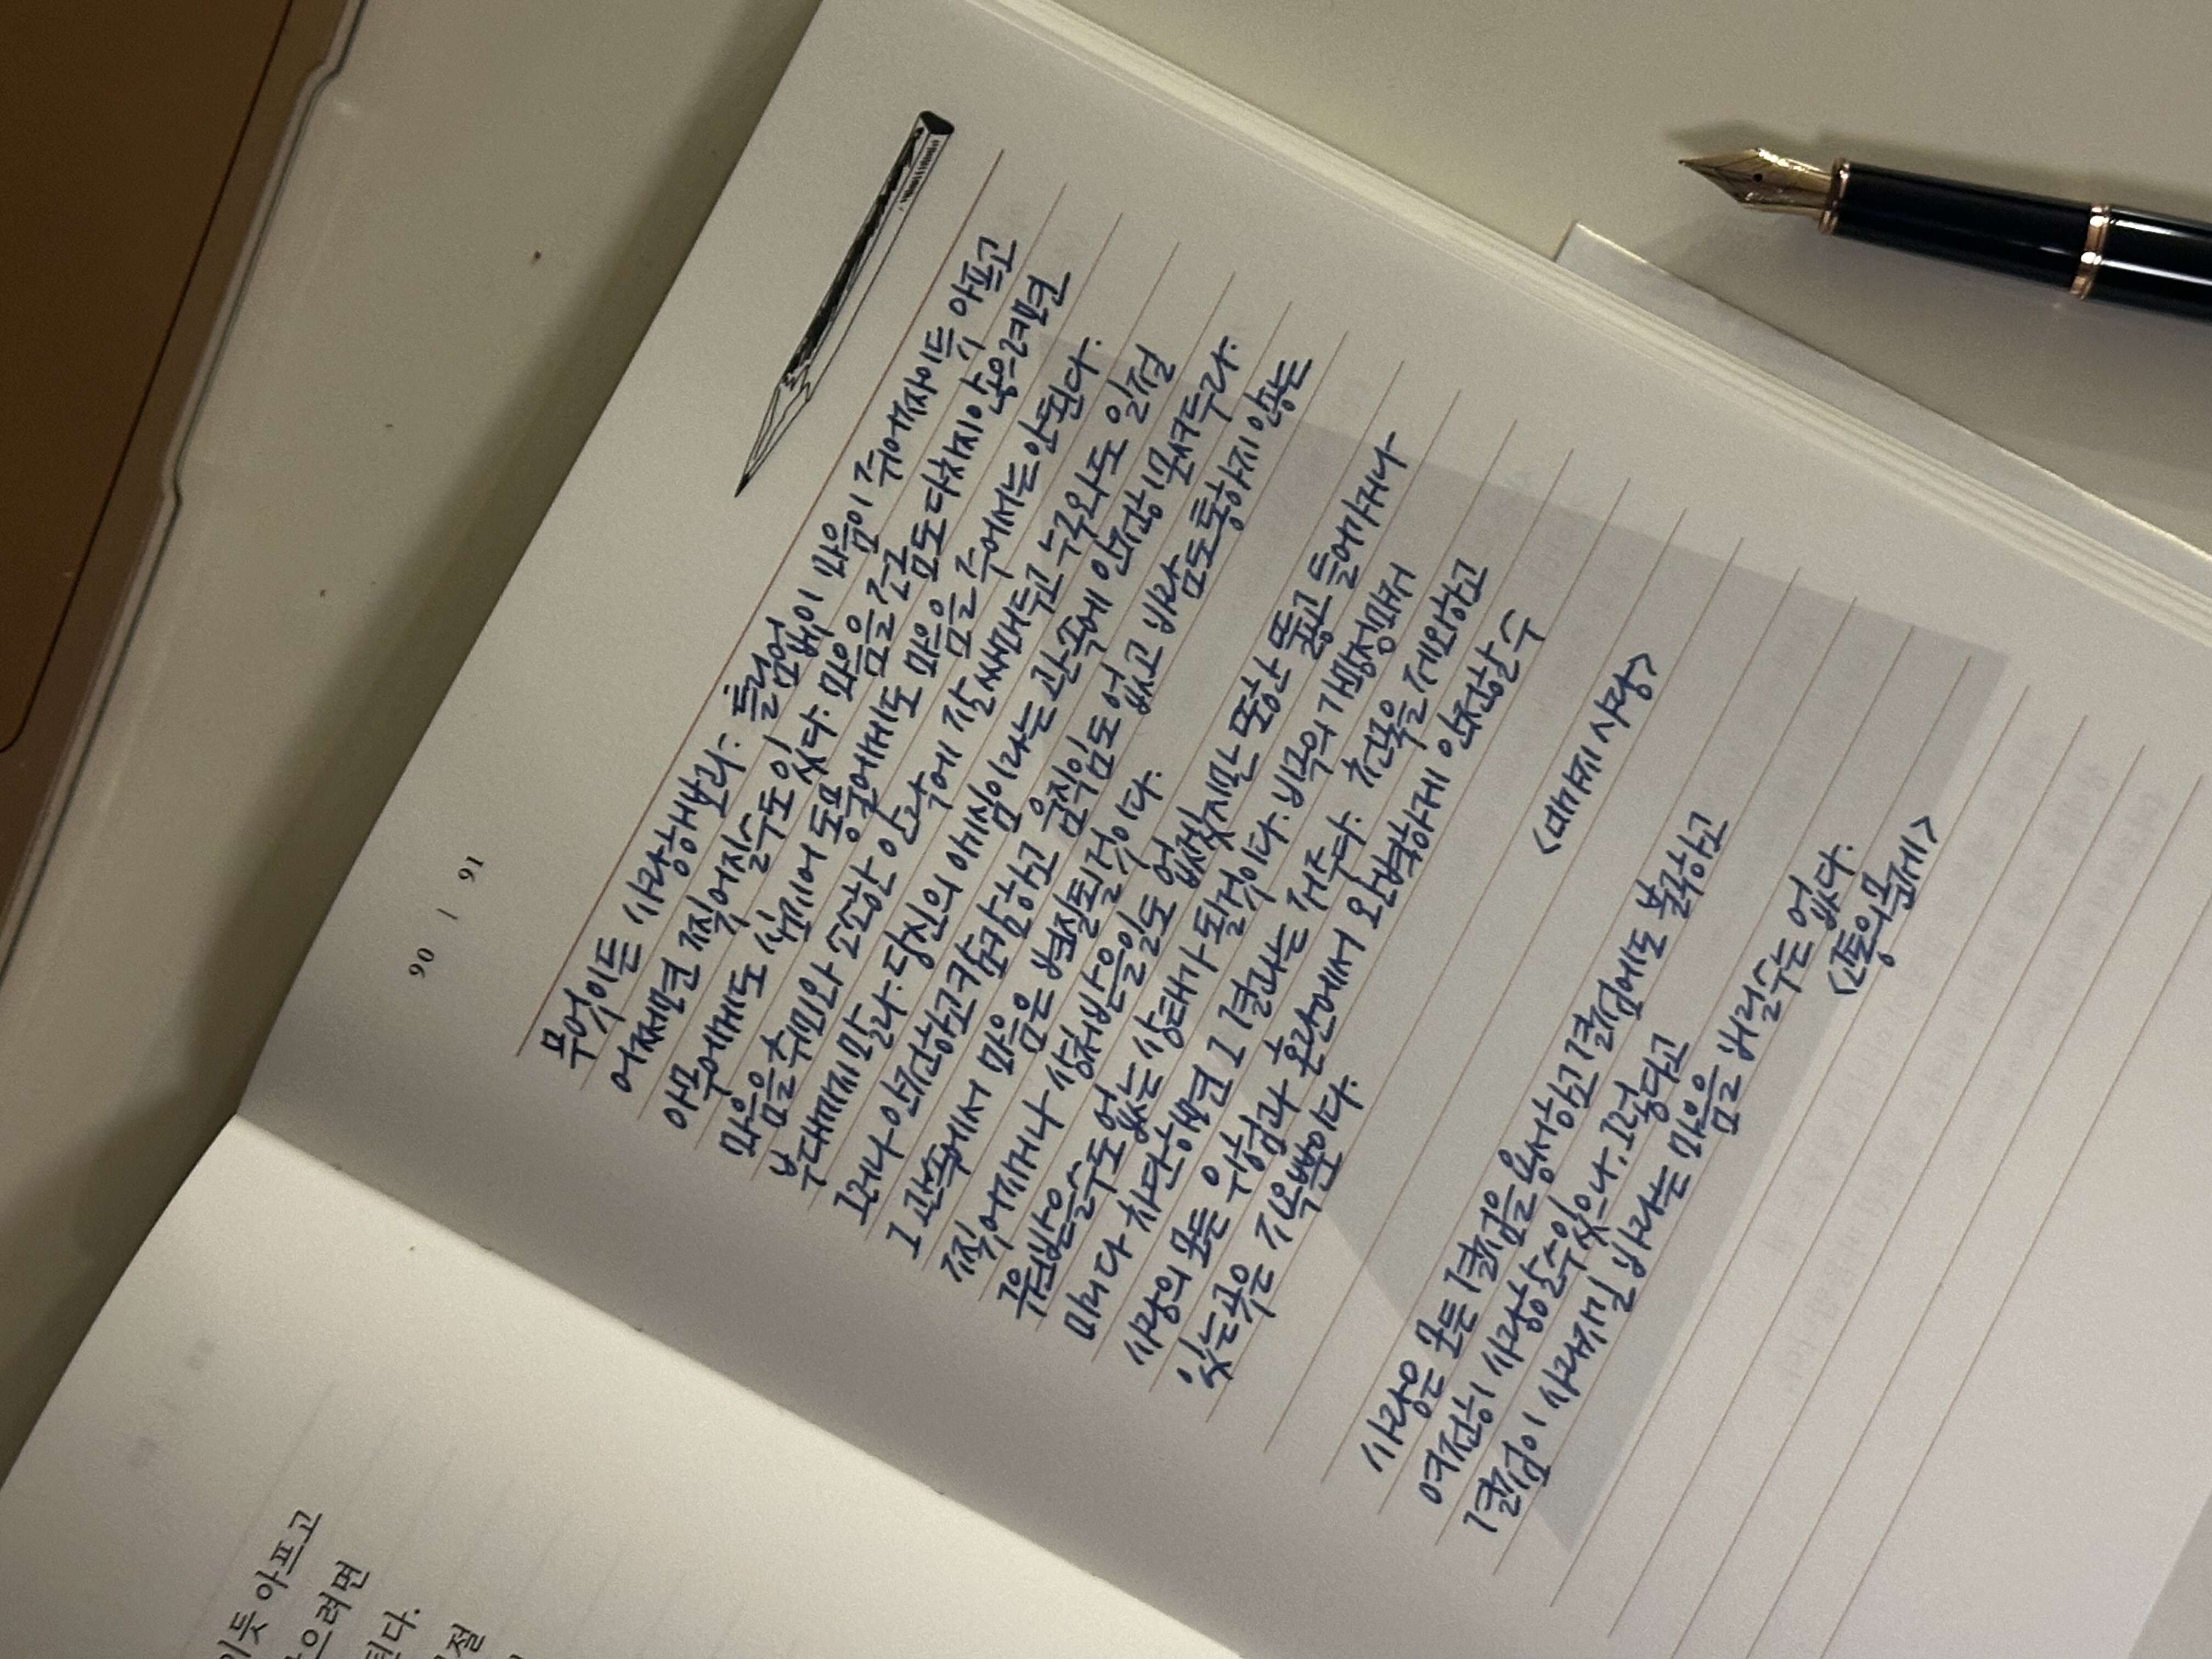 90 | 91
무엇이든 사랑해보라. 틀림없이 마음이 쥐어짜이듯 아프고
어쩌면 찢어질 수도 있다. 마음을 조금도 다치지 않으려면
아무에게도 심지어 동물에게도 마음을 주어서는 안된다.
마음을 취미와 소소한 안락에 잘 싸매두고 누구와도 일절
부대끼지 말라. 당신의 이기심이라는 관 속에 안전히 모셔두라.
그러나 안전하고 캄캄하고 움직임도 없고 바람도 통하지 않는
그 관 속에서 마음은 변질될 것이다.
찢어지거나 상처받을 일도 없겠지만 또한 뚫고 들어가거나
구원받을 수도 없는 상태가 될 것이다. 비극의 가망성마저
미리 다 차단하면 그 결과는 저주다. 천국을 제외하고
사랑의 모든 위험과 혼란에서 완벽하게 안전할 수
있는 곳은 지옥뿐이다.
<네 가지 사랑>
사랑은 모든 결점을 용서하고 결점에도 불구하고
여전히 사랑할 수 있으나, 그렇다고
결점이 사라지길 바라는 마음을 버릴 수는 없다.
<고통의 문제>
이듯 아프고
으려면
된다.
절